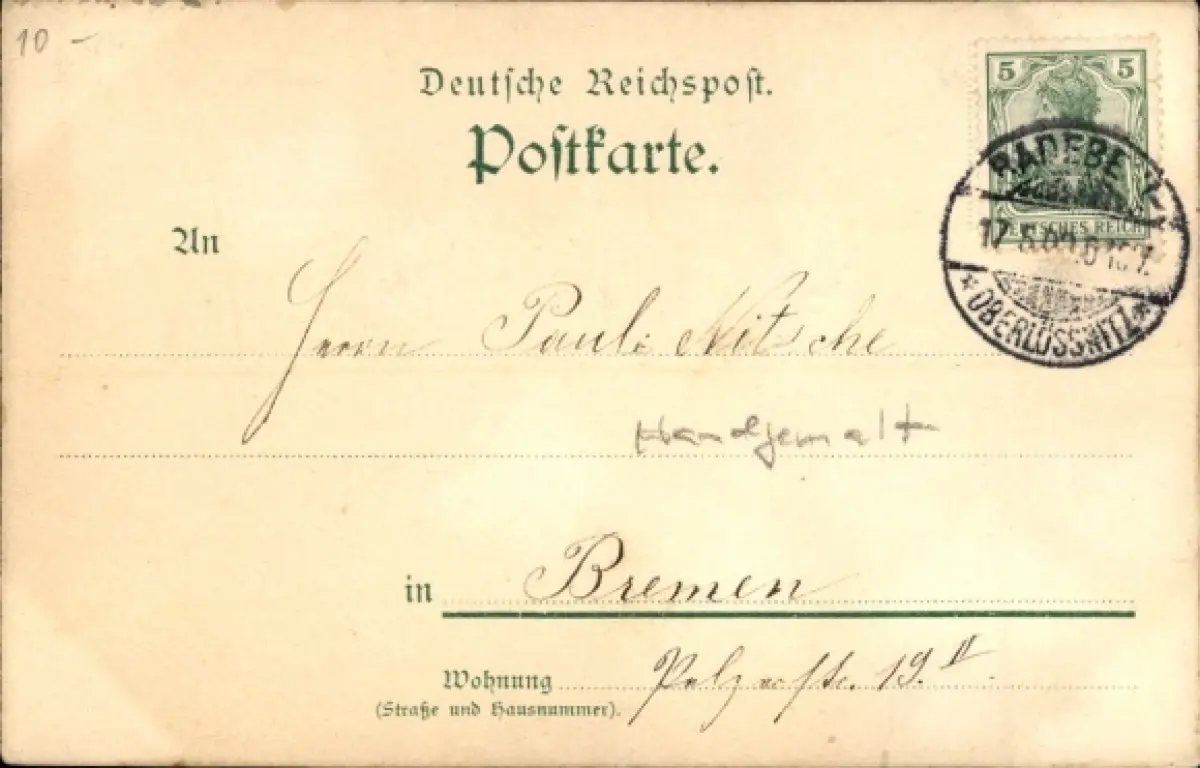 10 -
Deutsche Reichspost.
Postkarte.
5 5
DEUTSCHES REICH
RADEBEUL
OBERLÖSSNITZ
An
Herrn Paul Nitsche
Handgemalt
in Bremen
Wohnung 19. II
(Straße und Hausnummer).